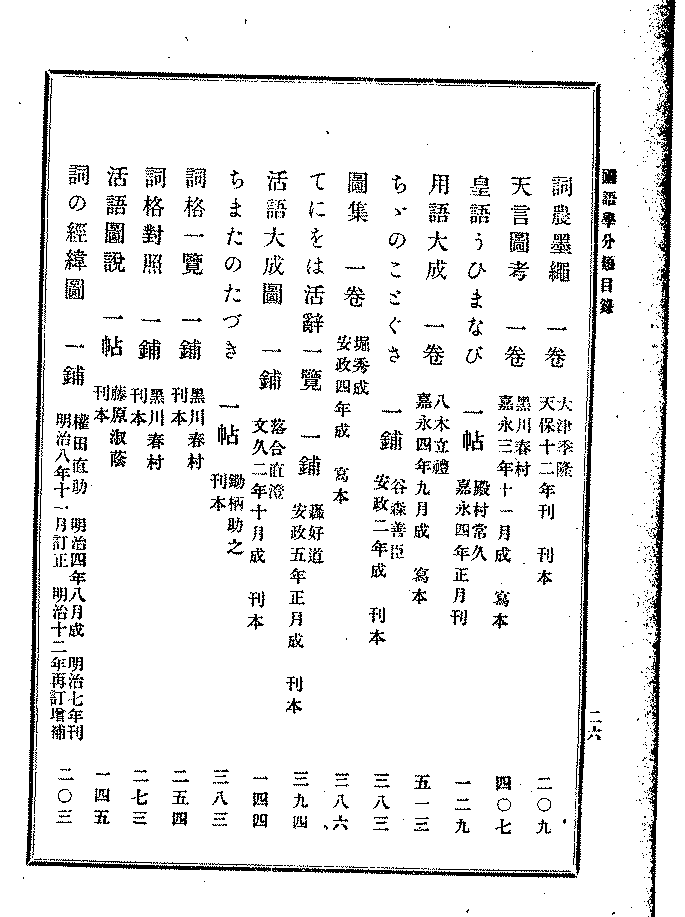 國語學分類目錄
二六
詞農墨繩　一卷　大津季隆　天保十二年刊　刊本　二〇九
天言圖考　一卷　黑川春村　嘉永三年十一月成　寫本　四〇七
皇語うひまなび　一帖　殿村常久　嘉永四年正月刊　一二九
用語大成　一卷　八木立禮　嘉永四年九月成　寫本　五一三
ちゞのことぐさ　一鋪　谷森善臣　安政二年成　刊本　三八三
圖集　一卷　堀秀成　安政四年成　寫本　三八六
てにをは活辭一覽　一鋪　好道　安政五年正月成　刊本　三九四
活語大成圖　一鋪　落合直澄　文久二年十月成　刊本　一四四
ちまたのたづき　一帖　鋤柄助之　刊本　三八三
詞格一覽　一鋪　黑川春村　刊本　二五四
詞格對照　一鋪　黑川春村　刊本　二七三
活語圖說　一帖　藤原淑蔭　刊本　一四五
詞の經緯圖　一鋪　權田直助　明治四年八月成　明治七年刊　明治八年十一月訂正　明治十二年再訂增補　二〇三